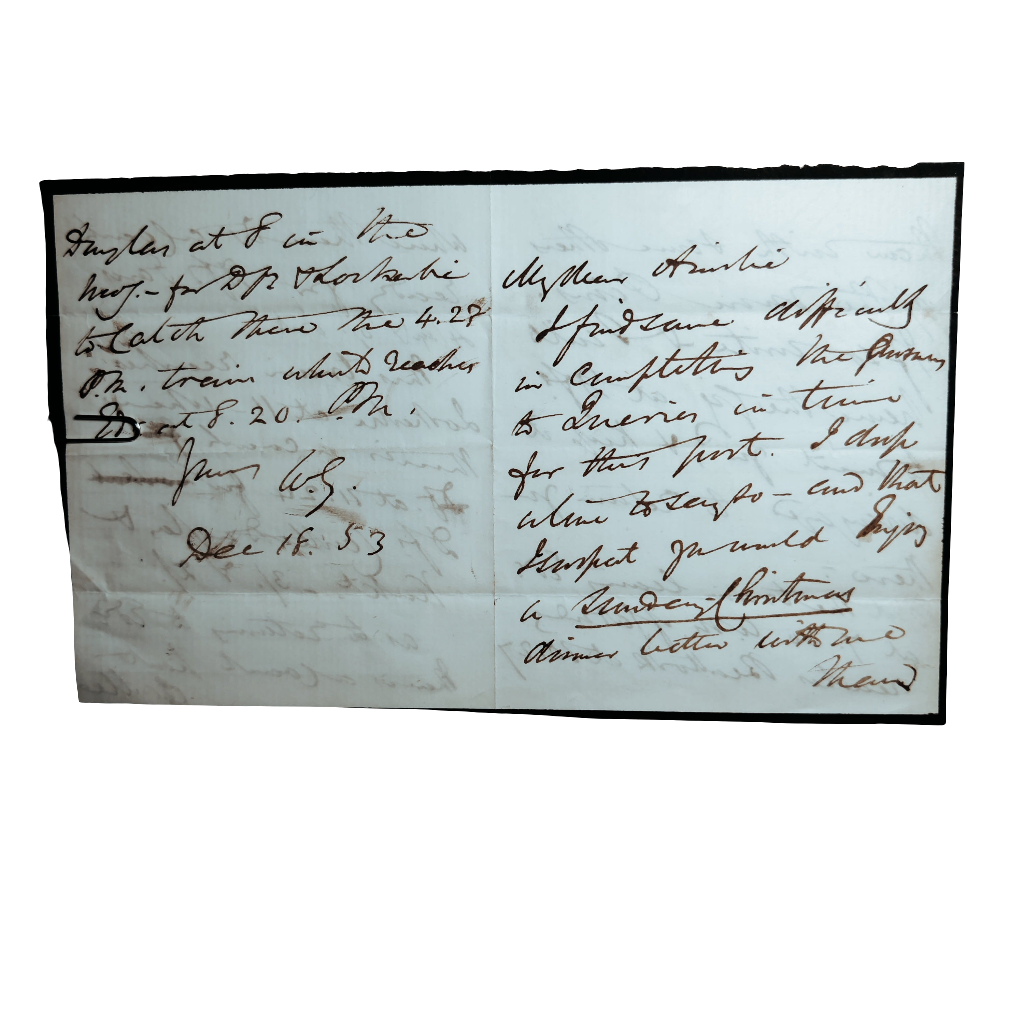 My dear Ainslie
I find some difficulty
in completing the Answers
to Queries in time
for this post. I
alone to say so – and that
I suspect you would Enjoy
a Sunday-Christmas
dinner better with me
than
Douglas at 8 in the
for & Lockerbie
to Catch there the 4.28
P.M. train which reaches
at 8.20. P.M.
Yours W.G.
Dec 18. 53